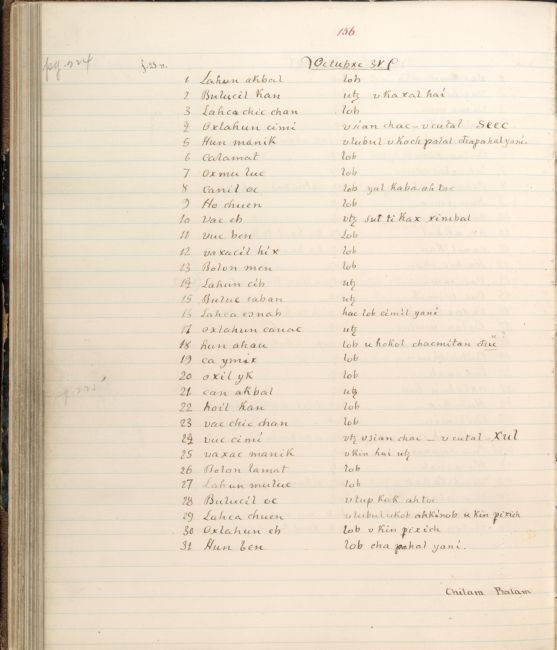 156
pg. 224 f. 23 v. Octubre 31
1 Lahun akbal lob
2 Bulucil Kan utz v kaxal hai
3 Lahca chic chan lob
4 Oxlahun cimi v sian chac _ v cutal Seec
5 Hun manik vlubul v koch palal yani
6 ca lamat lob
7 Ox muluc lob
8 Canil oc lob yul kaba ah toc
9 Ho chuen lob
10 Vac eb vtz sut ti kax ximbal
11 vuc ben lob
12 vaxacil hix lob
13 Bolon men lob
14 Lahun cib utz
15 Buluc caban utz
16 Lahca esnab hac lob cimil yani
17 oxlahun cauac utz
18 hun ahau lob u hokol chacmitan
19 ca ymix lob
20 oxil yk lob
21 can akbal utz
22 hoil Kan lob
23 vac chic chan lob
24 vuc cimi vtz vsian chac _ v cutal Xul
25 vaxac manik v kin hai utz
26 Bolon lamat lob
27 Lahun muluc lob
28 Bulucil oc v tup kak ah toc
29 Lahca chuen vlubul ukob ahkinob u kin pixich
30 Oxlahun eb lob v kin pixich
31 Hun ben lob cha pahal yani.
Chilam Balam